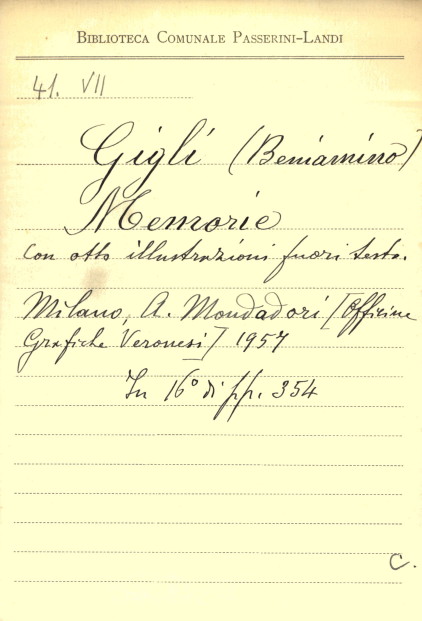 BIBLIOTECA COMUNALE PASSERINI-LANDI
41. VII
Gigli (Beniamino)
Memorie
con otto illustrazioni fuori testo.
Milano, A. Mondadori [Officine
Grafiche Veronesi] 1957
In 16° di pp. 354
C.